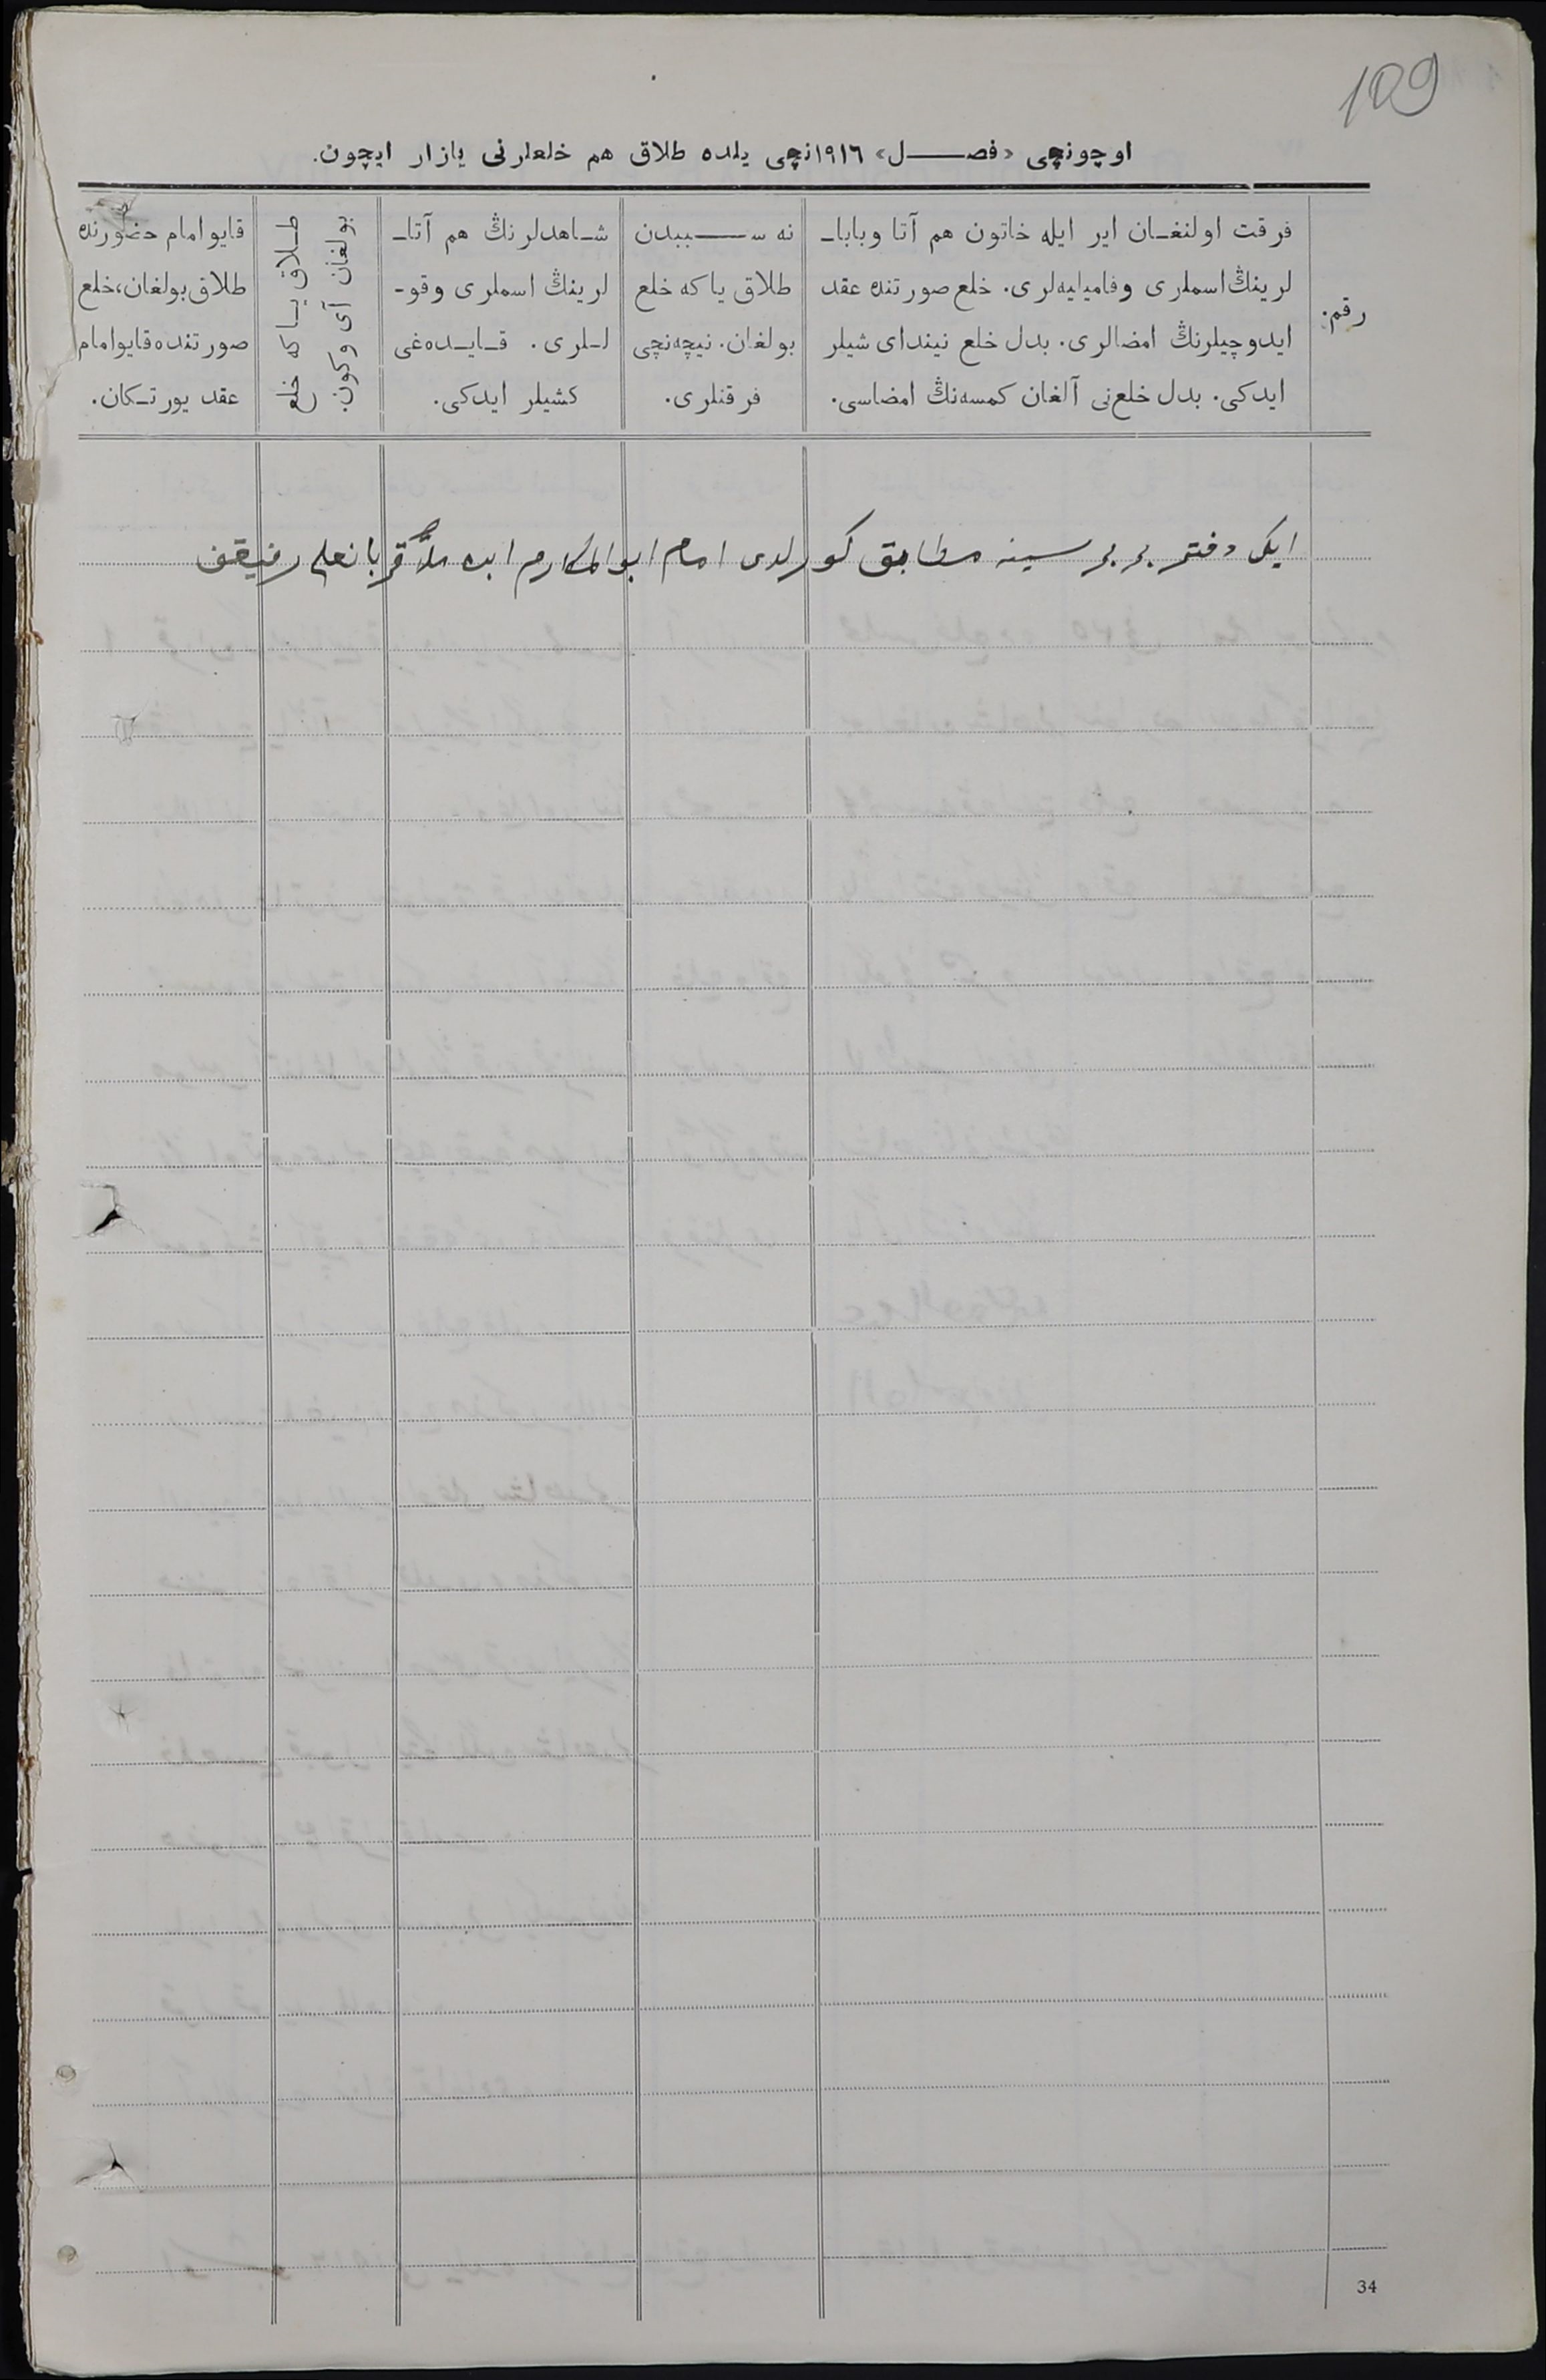 109
اوچونچی «فصـــل» ١٩١٦نچی یلده طلاق هم خلعلرنی یازار ایچون.
رقم.
فرقت اولنغـان ایر ایله خاتون هم آتا وبابا‌ـ
لرینڭ اسملری وفامیلیه‌لری. خلع صورتنده عقد
ایدوچیلرنڭ امضالری. بدل خلع نیندای شیلر
ایدکی. بدل خلع‌نی آلغان کمسه‌نڭ امضاسی.
نه ســـببدن
طلاق یا که خلع
بولغان. نیچه‌نچی
فرقتلری.
شـاهدلرنڭ هم آتا‌ـ
لرینڭ اسملری وقو‌ـ
لـلری. قـایـده‌غی
کشیلر ایدکی.
طـلاق یـا که خلع
بولغان آی وکون.
قایو امام حضورنده
طلاق بولغان، خلع
صورتنده قایو امام
عقد یورتـکان.
ایکی دفتر بر بر سینه مطابق کورلدی امام ابوالمکارم ابن ملا قربانعلی رفیقف
34